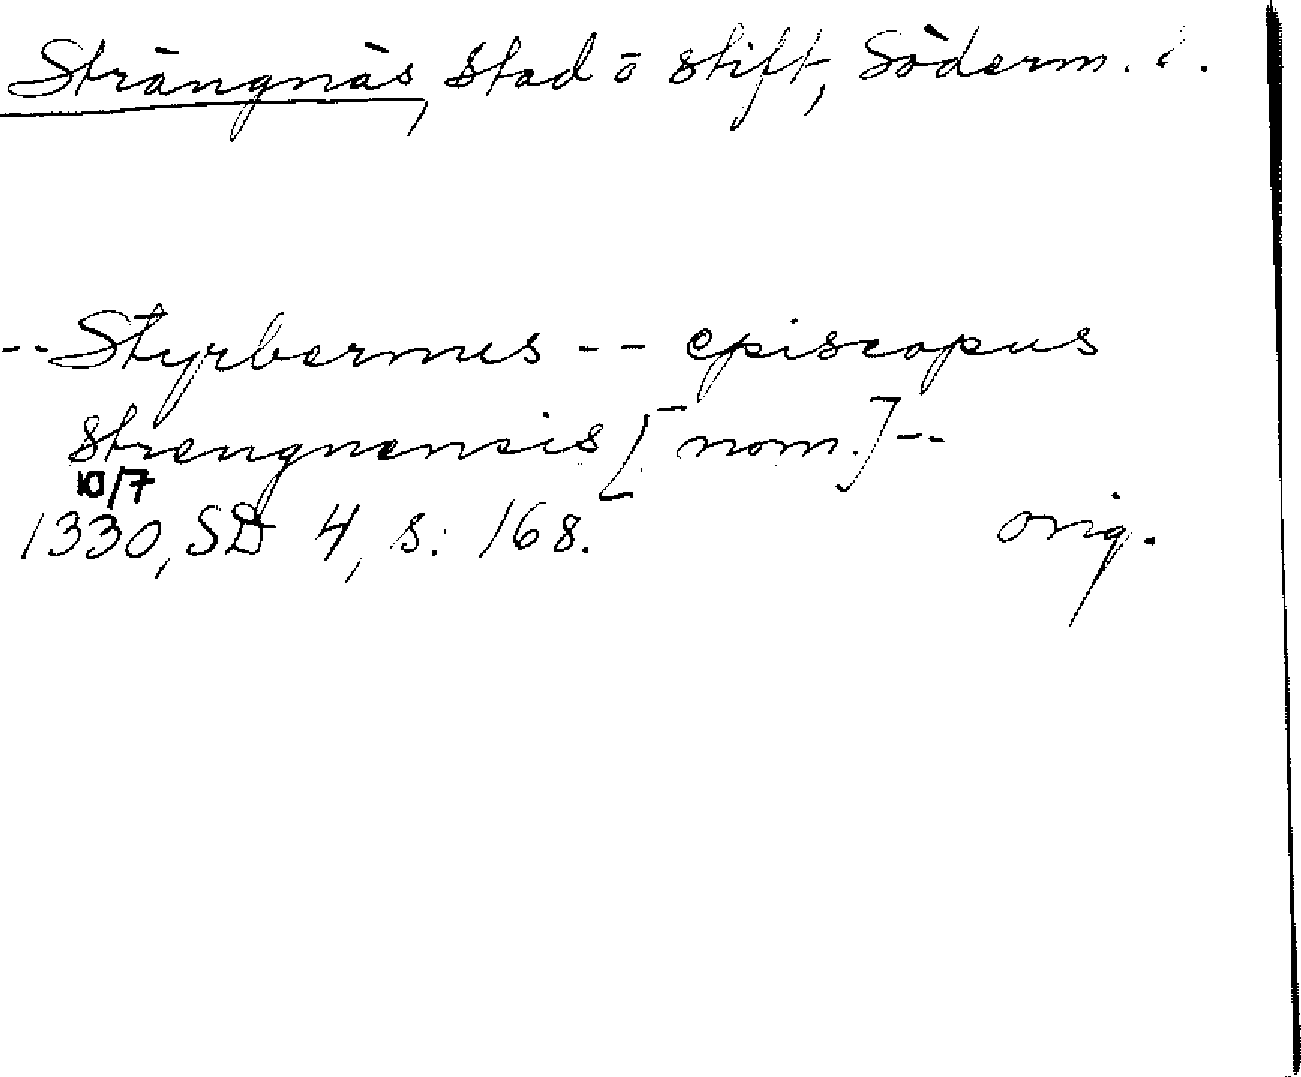 Strängnäs, stad o stift, Söderm. l.
-- Styrbernus -- episcopus
strengnensis [nom.] --
10/7
1330, SD 4, s. 168. orig.